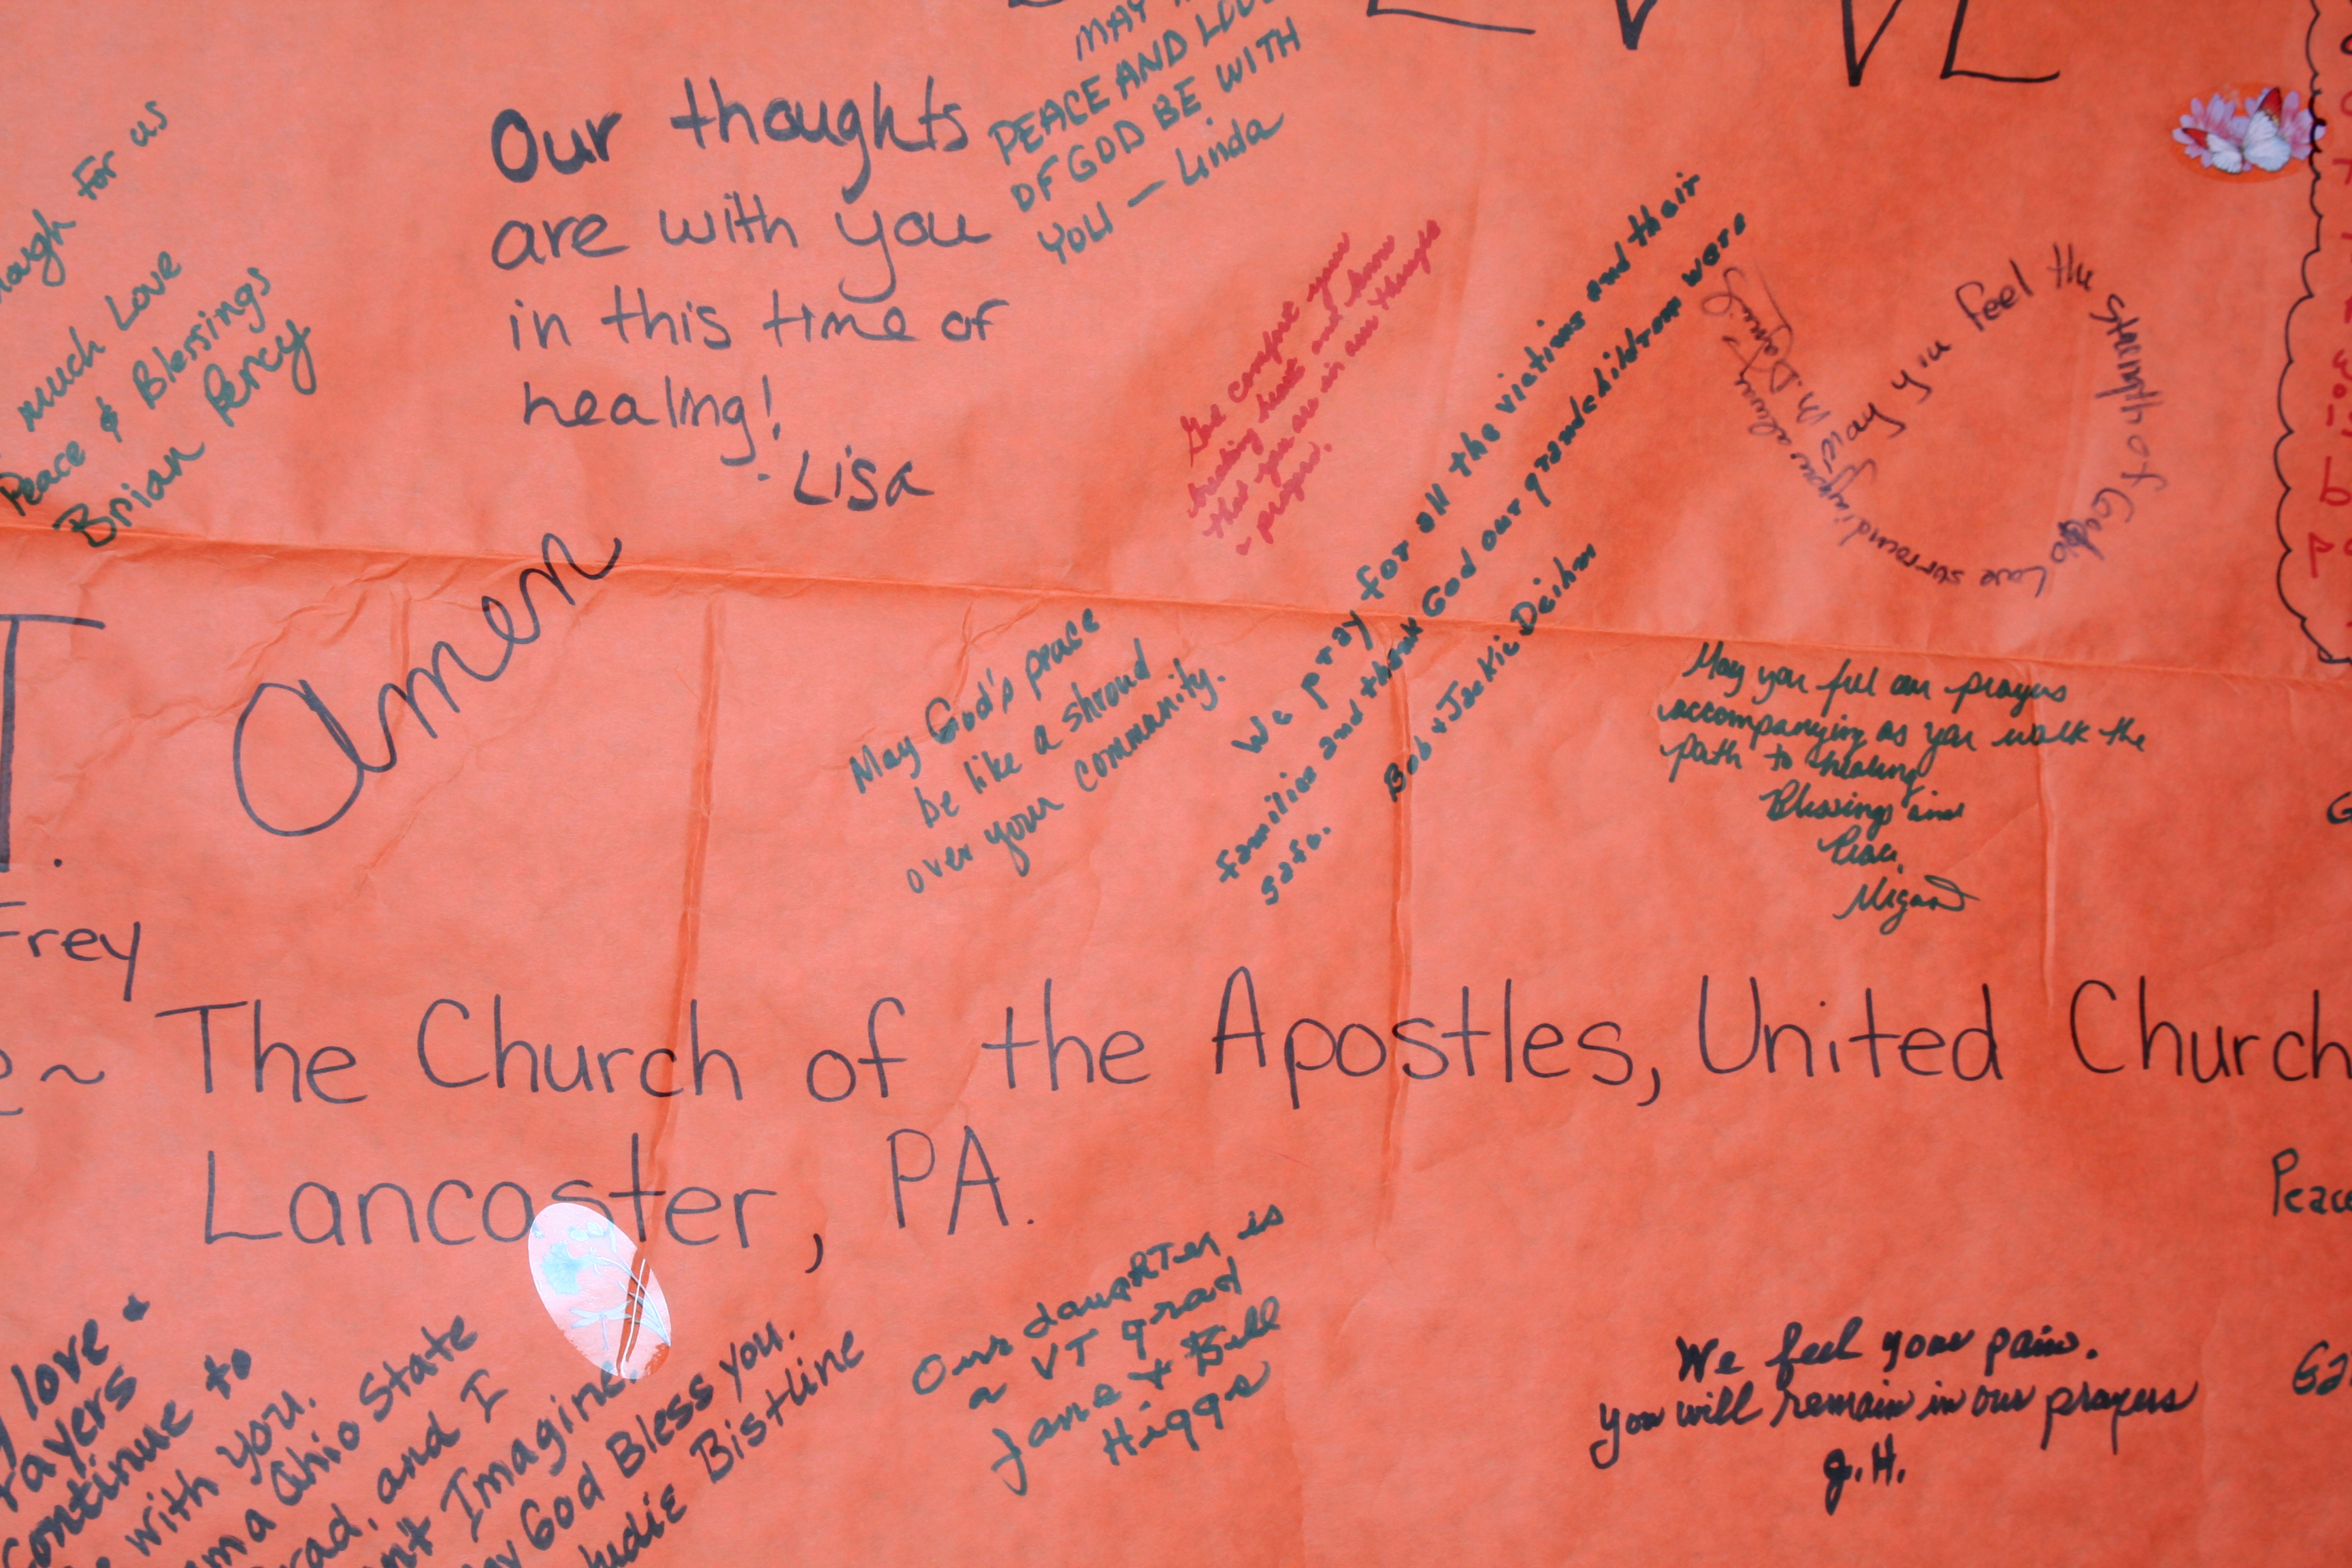 for us
much Love
Peace & Blessings
Brian Percy
Our thoughts
are with you
in this time of
healing!
- Lisa
MAY
PEACE AND
OF GOD BE WITH
YOU — Linda
God comfort your
breaking heart and know
that you are in our thoughts
prayers.
We pray for all the victims and their
families and thank God our grandchildren were
safe.
Bob & Jackie Deihm
May you feel the
strength of God's
love surrounding you always
M. Daniel
Amen
T.
May God's peace
be like a shroud
over your community.
May you feel our prayers
accompanying as you walk the
path to healing
Blessings and
Peace,
Frey
~ The Church of the Apostles, United Church
Lancaster, PA.
love &
continue to
with you.
Ohio State
and I
Imagine.
God Bless you.
Bistline
Our daughter is
a VT grad
Jane & Bill
Higgs
We feel your pain.
you will remain in our prayers
J.H.